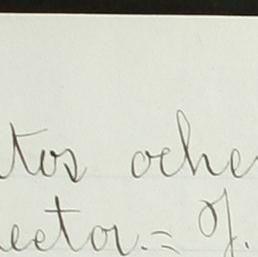 tos oche
rector.= J.